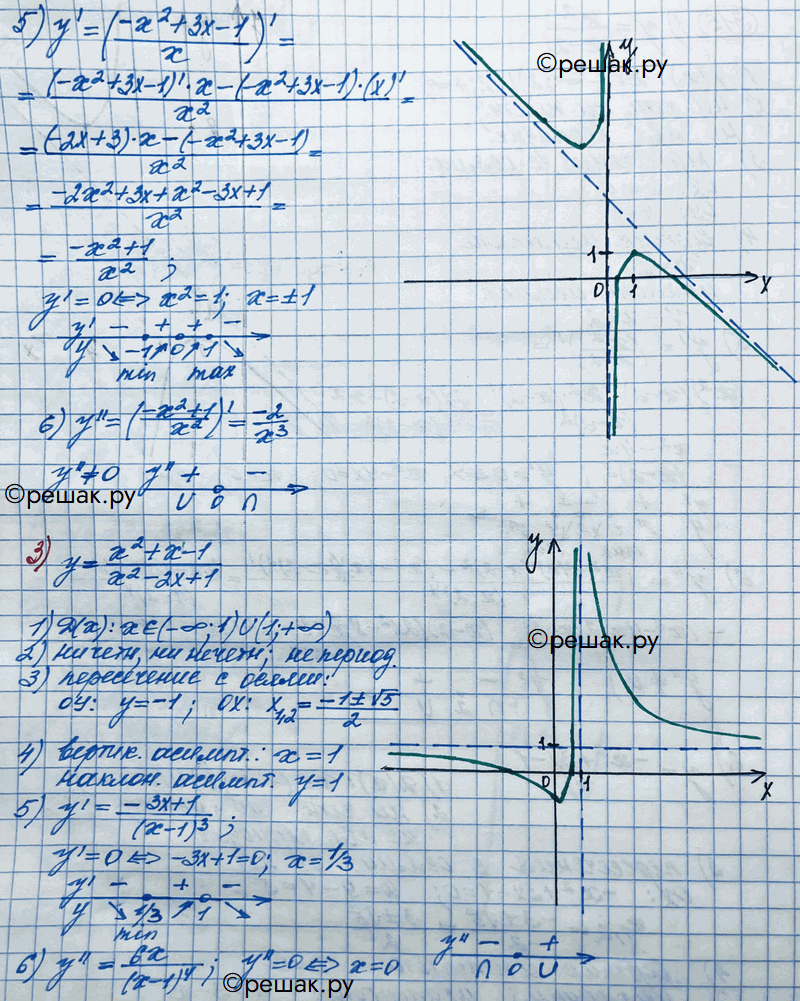 5) y' = ((-x²+3x-1)/x)' =
= ((-x²+3x-1)'·x-(-x²+3x-1)·(x)')/x² =
= ((-2x+3)·x-(-x²+3x-1))/x² =
= (-2x²+3x+x²-3x+1)/x² =
= (-x²+1)/x² ;
y'=0 <=> x²=1; x=±1
y' - + + -
y ↘ -1 ↗ 0 ↗ 1 ↘
min max
6) y''=((-x²+1)/x²)' = -2/x³
y''≠0 y'' + -
∪ 0 ∩
©решак.ру
©решак.ру
y
1
0 1 x
3) y = (x²+x-1)/(x²-2x+1)
1) D(x): x∈(-∞;1)∪(1;+∞)
2) ни четн, ни нечетн; не период.
3) пересечение с осями:
оу: y=-1 ; ох: x₁,₂ = (-1±√5)/2
4) вертик. асимпт.: x=1
наклон. асимпт. y=1
5) y' = (-3x+1)/(x-1)³ ;
y'=0 <=> -3x+1=0; x=1/3
y' - + -
y ↘ 1/3 ↗ 1 ↘
min
6) y'' = 6x/(x-1)⁴ ; y''=0 <=> x=0
y'' - +
∩ 0 ∪
©решак.ру
y
©решак.ру
1
0 1 x